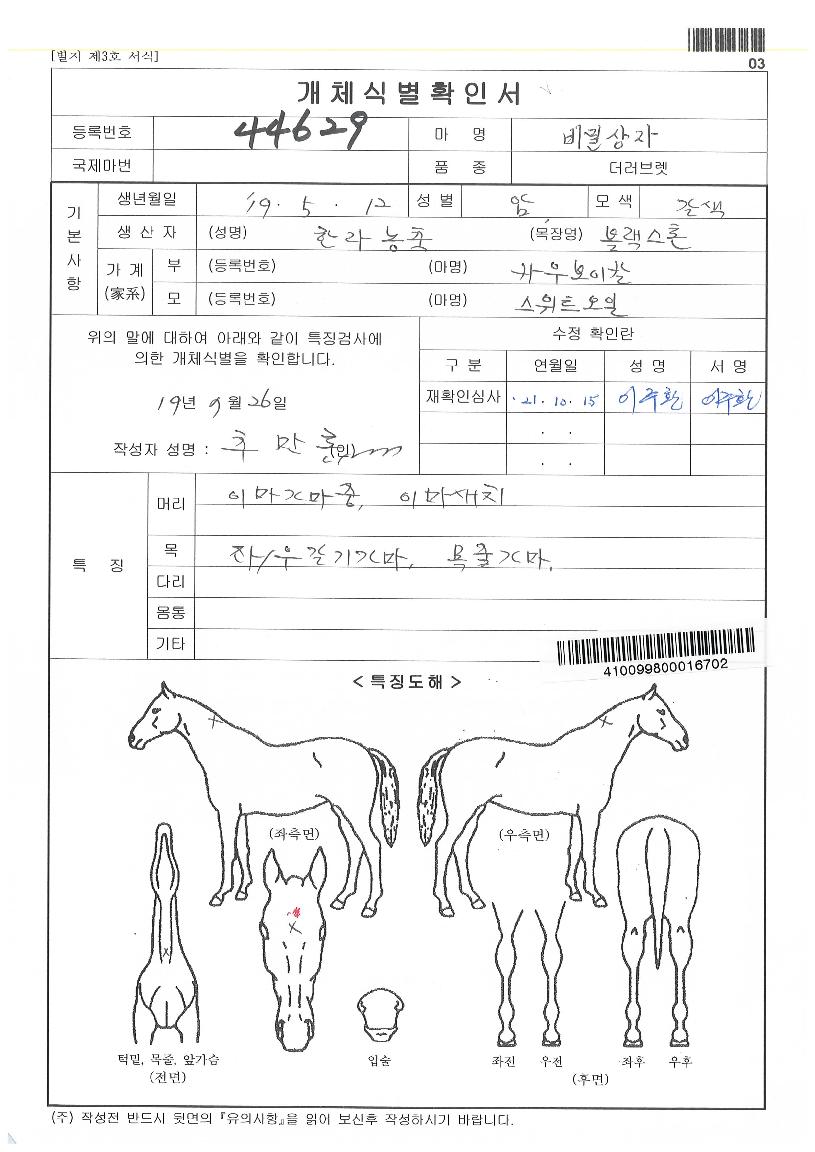 [별지 제3호 서식]
03
개체식별확인서
등록번호 44629 마 명 비밀상자
국제마번 품 종 더러브렛
기본사항
생년월일 '19. 5. 12 성 별 암 모 색 갈색
생 산 자 (성명) 한라농풋 (목장명) 블랙스톤
가 계 (家系) 부 (등록번호) (마명) 카우보이칼
모 (등록번호) (마명) 스위트오일
위의 말에 대하여 아래와 같이 특징검사에
의한 개체식별을 확인합니다.
19년 9월 26일
작성자 성명 : 추 만 (인)
수정 확인란
구 분 연월일 성 명 서 명
재확인심사 '21. 10. 15 이주환 이주환
. .
. .
특 징
머리 이마가마중, 이마새치
목 좌/우갈기가마, 목줄가마.
다리
몸통
기타
410099800016702
< 특징도해 >
(좌측면) (우측면)
턱밑, 목줄, 앞가슴
(전면)
입술
좌전 우전 좌후 우후
(후면)
(주) 작성전 반드시 뒷면의 『유의사항』을 읽어 보신후 작성하시기 바랍니다.